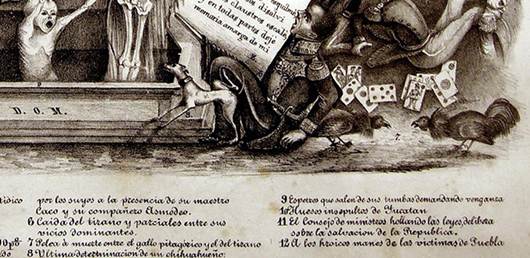 disolví
claustros escalé
y en todas partes dejé
memoria amarga de mi
D. O. M.
por los suyos a la presencia de su maestro
Caco y su compañero Asmodeo.
6 Caida del titano y parciales entre sus
vicios dominantes.
7 Pelea á muerte entre el gallo pitagórico y el del titano
8 Ultima determinacion de un chihuahueño:
9 Espetros que salen de sus tumbas demandando venganza
10 Huesos insepultos de Yucatan
11 El Consejo de ministros, hollando las leyes, delibera
sobre la salvacion de la Republica.
12 A los hroicos manes de las victimas de Puebla